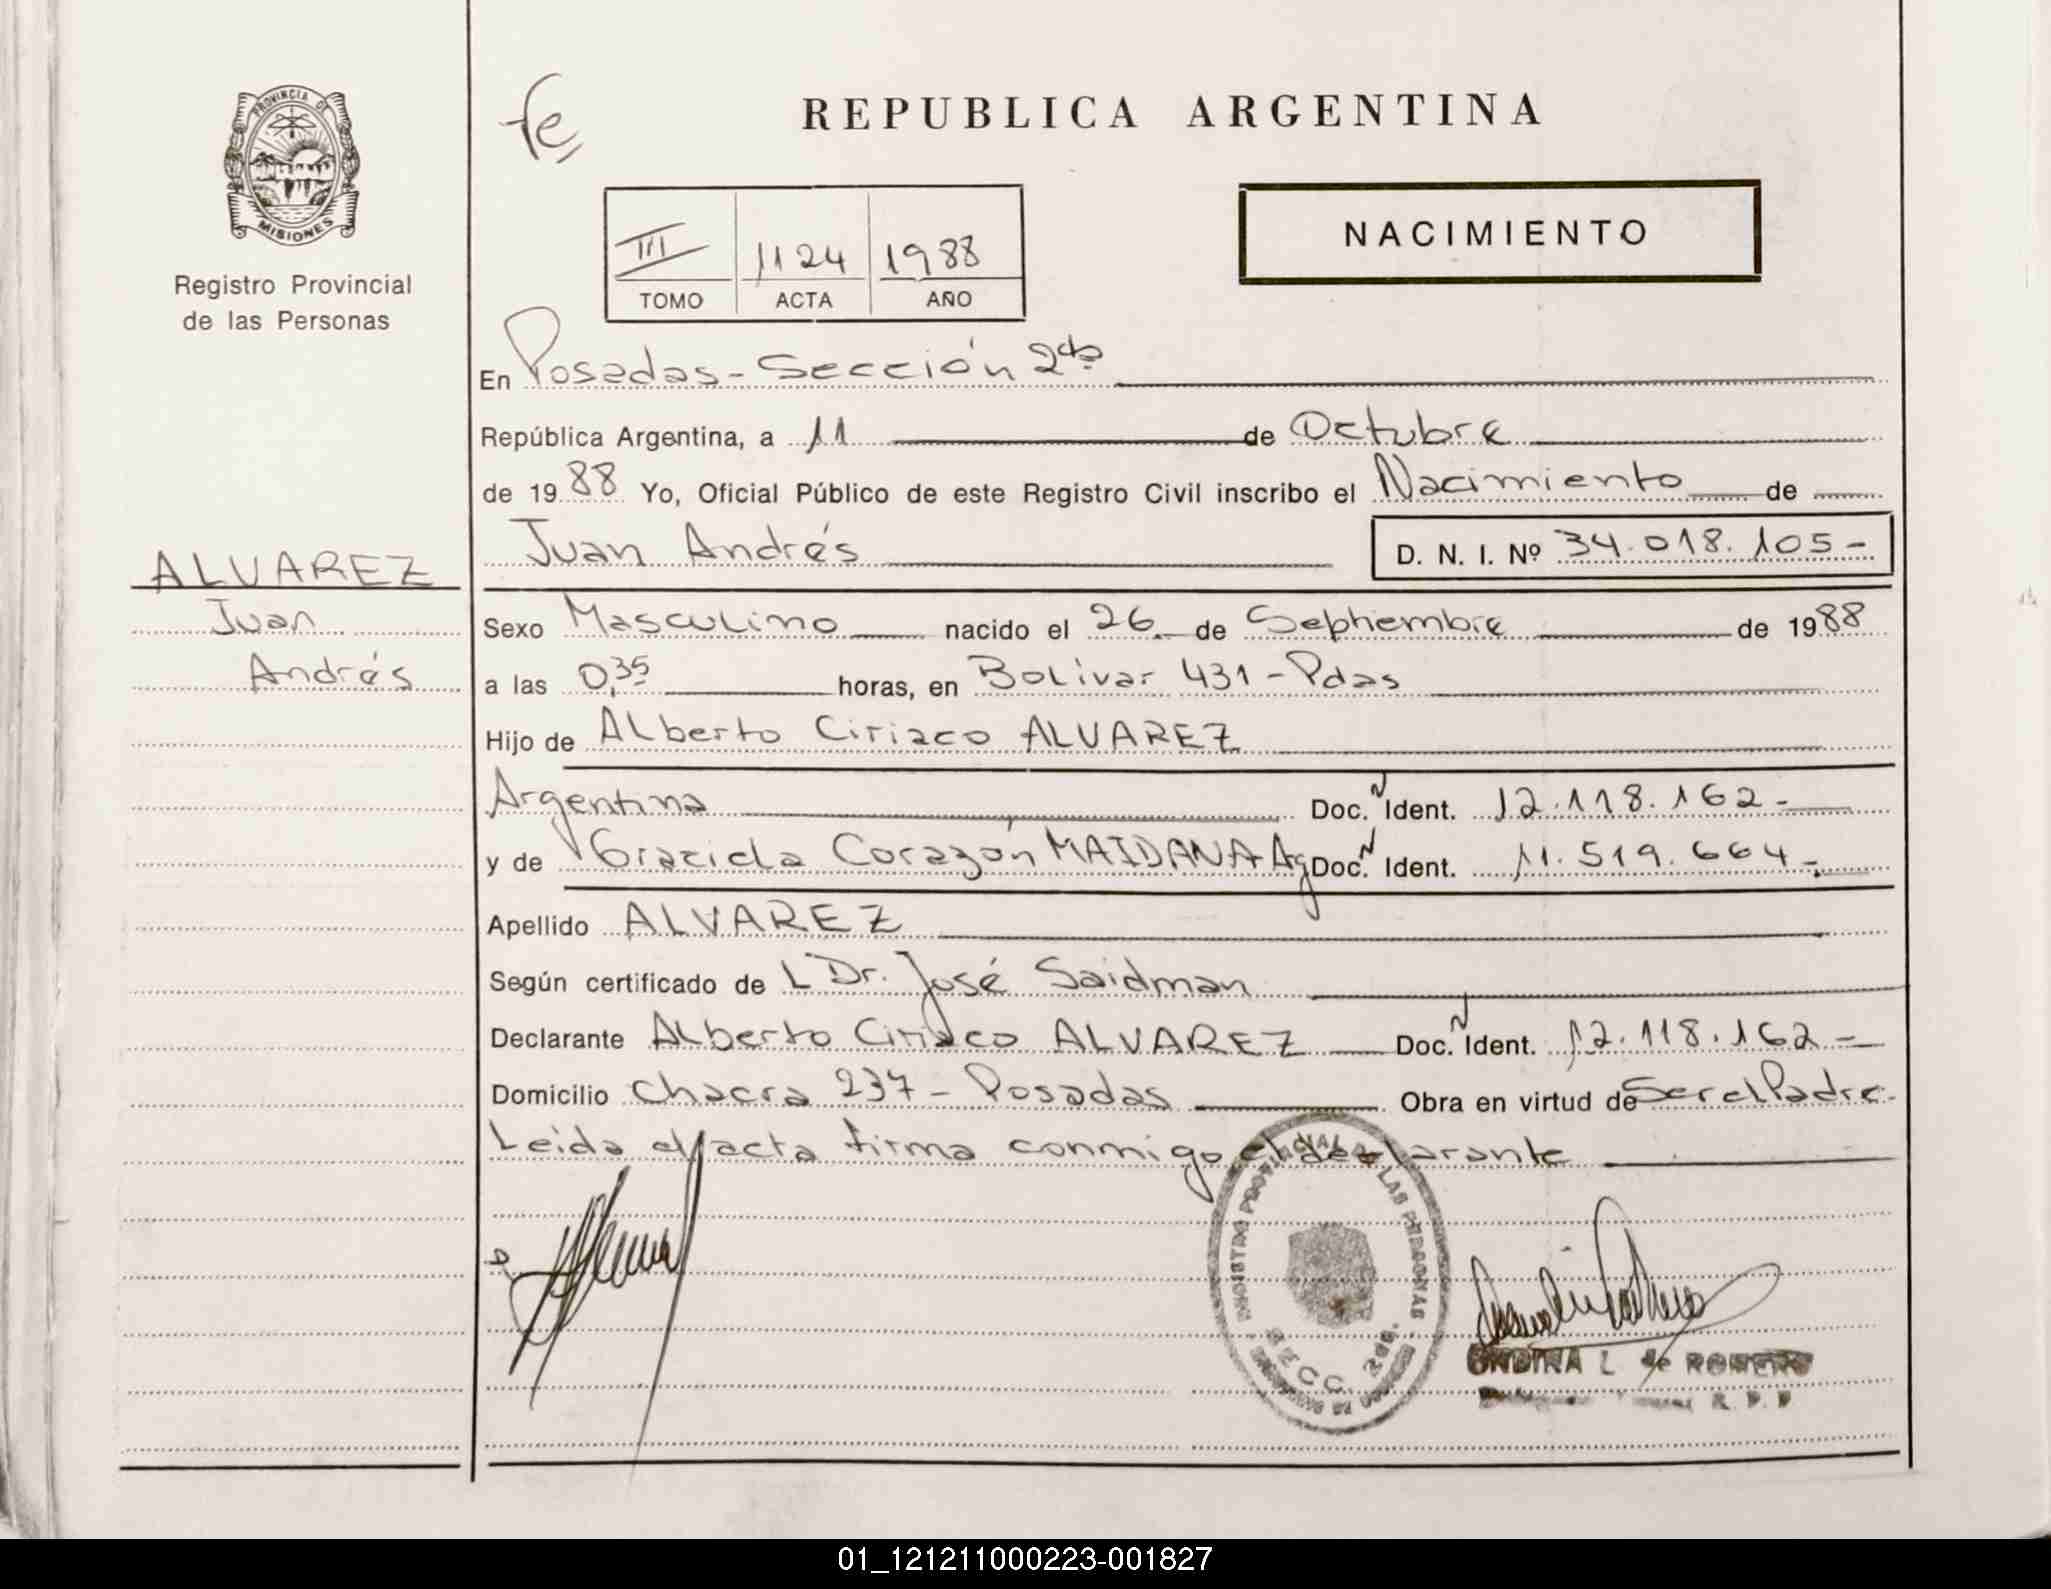 PROVINCIA DE
MISIONES
Registro Provincial
de las Personas
ALVAREZ
Juan
Andrés
fe
REPUBLICA ARGENTINA
III 1124 1988
TOMO ACTA AÑO
NACIMIENTO
En Posadas - Sección 2da
República Argentina, a 11 de Octubre
de 1988 Yo, Oficial Público de este Registro Civil inscribo el Nacimiento de
Juan Andrés D. N. I. Nº 34.018.105-
Sexo Masculino nacido el 26 de Septiembre de 1988
a las 0,35 horas, en Bolívar 431 - Pdas
Hijo de Alberto Ciriaco ALVAREZ
Argentina Doc. N Ident. 12.118.162-
y de Graciela Corazón MAIDANA Ag Doc. N Ident. 11.519.664-
Apellido ALVAREZ
Según certificado de L Dr. José Saidman
Declarante Alberto Ciriaco ALVAREZ Doc. N Ident. 12.118.162-
Domicilio Chacra 237 - Posadas Obra en virtud de Ser el Padre.
Leida el acta firma conmigo el declarante
REGISTRO PROVINCIAL DE LAS PERSONAS
SECC. 2da.
ONDINA L de ROMERO
R. P. P
01_121211000223-001827